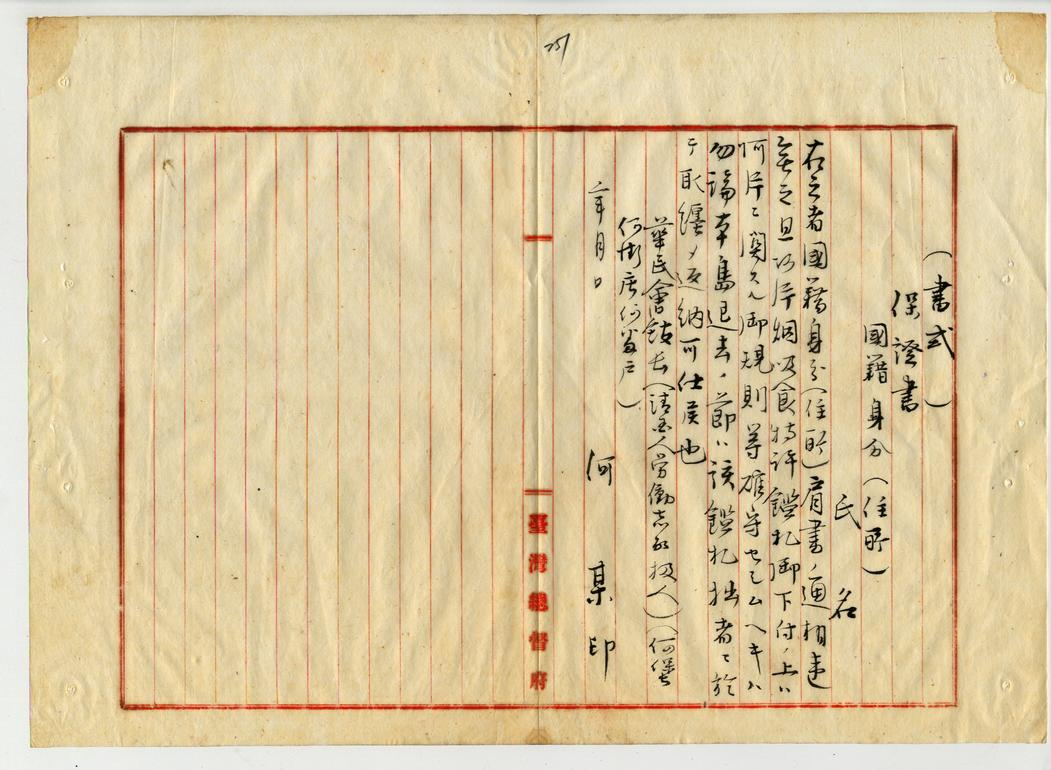 （書式）
保證書
國籍身分（住所）
氏名
右之者國籍身分（住所）肩書ノ通相違
無之且阿片烟吸食特許鑑札御下付ノ上ハ
阿片ニ関スル御規則等確守セシムヘキハ
勿論本島退去ノ節ハ該鑑札拙者ニ於
テ取纏メ返納可仕候也
華民會館長（清国人労働者取扱人）（何堡
何街庄何番戸）
年月日
何某印
臺灣總督府